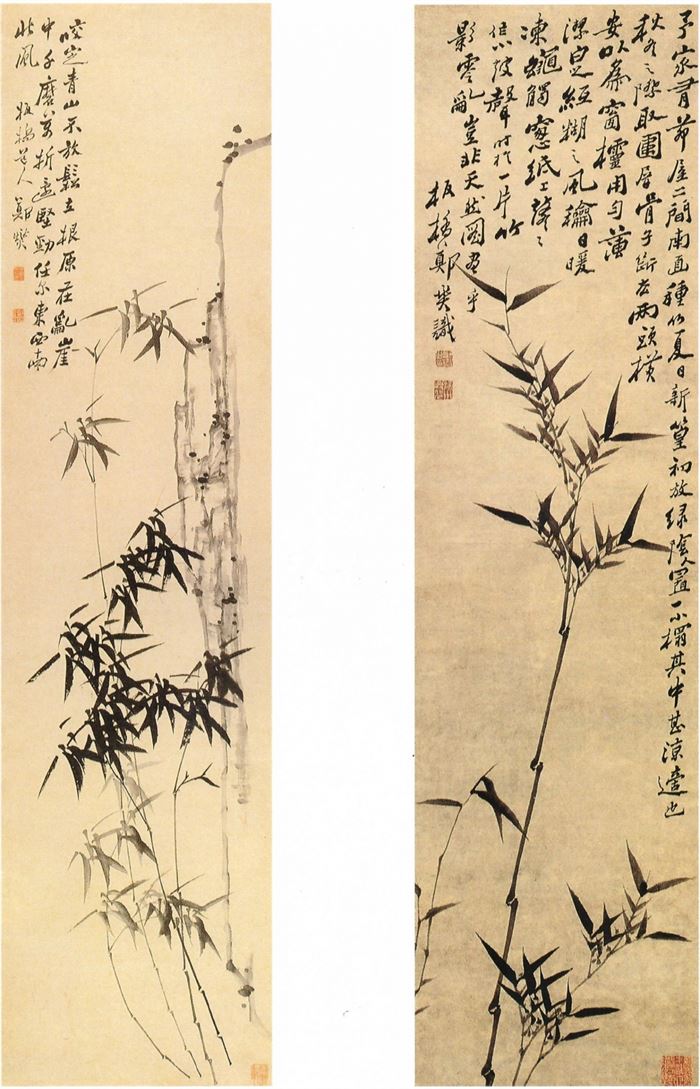 予家有茆屋二間南面種竹夏日新篁初放綠陰置一小榻其中甚涼適也
秋冬之際取圍屏骨子斷去兩頭橫
安以為窗櫺用勻薄
潔白紙糊之風龢日暖
凍蠅觸窻紙上鼕〻
作小鼓聲時於一片竹
影零亂豈非天然圖畫乎
板橋鄭燮識
咬定青山不放鬆立根原在亂崖
中千磨萬折還堅勁任尔東西南
北風 板橋道人鄭燮